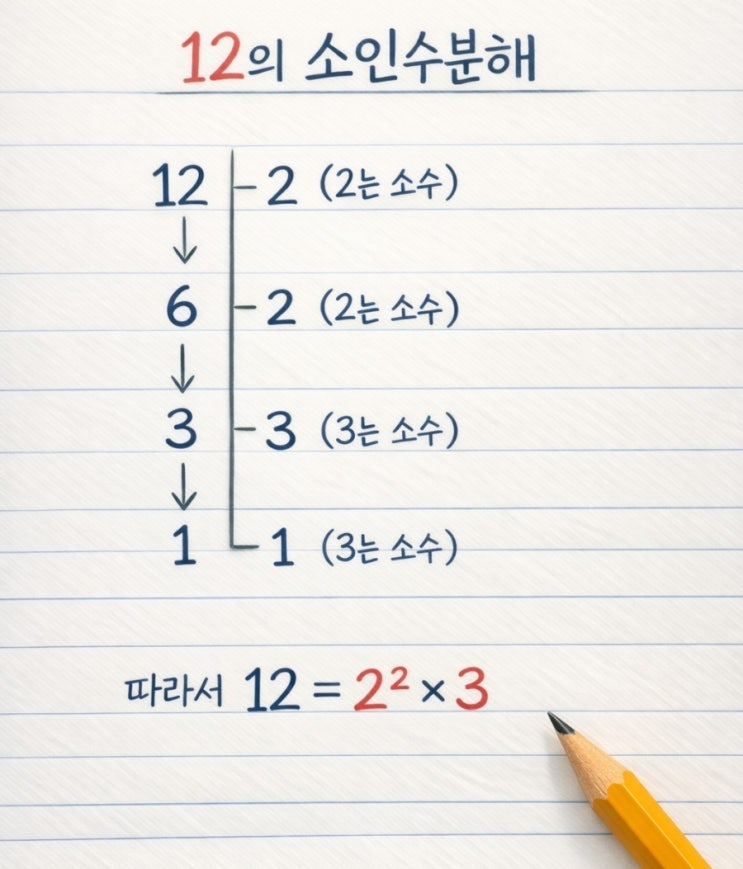 12의 소인수분해
12 - 2 (2는 소수)
↓
6 - 2 (2는 소수)
↓
3 - 3 (3는 소수)
↓
1 1 (3는 소수)
따라서 12 = 2² × 3